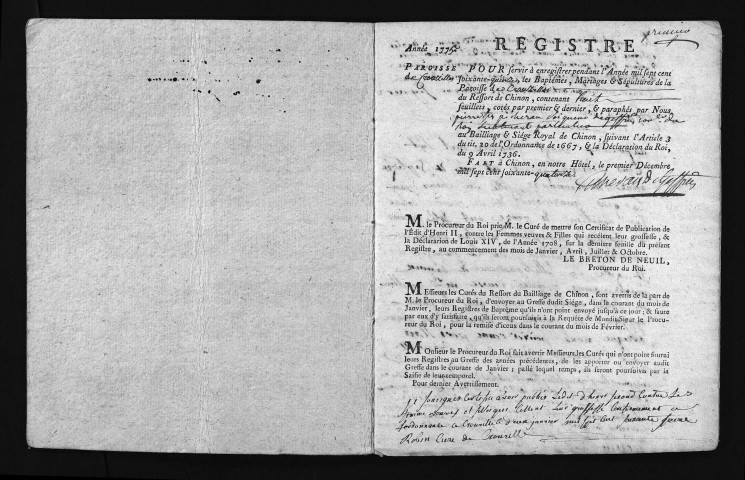 premier
Année 1775
REGISTRE
PAROISSE
de Crouzilles
POUR servir à enregistrer pendant l'Année mil sept cent
soixante-quinze, les Baptêmes, Mariages & Sépultures de la
Paroisse de Crouzilles
du Ressort de Chinon, contenant huit
feuillets, cotés par premier & dernier, & paraphés par Nous
Roy, Lieutenant particulier
au Bailliage & Siége Royal de Chinon, suivant l'Article 3
du tit. 20 de l'Ordonnance de 1667, & la Déclaration du Roi,
du 9 Avril 1736.
FAIT à Chinon, en notre Hôtel, le premier Décembre
mil sept cent soixante-quatorze
M. le Procureur du Roi prie M. le Curé de mettre son Certificat de Publication de
l'Edit d'Henri II, contre les Femmes veuves & Filles qui recélent leur grossesse, &
la Déclaration de Louis XIV, de l'Année 1708, sur la derniere feuille du présent
Registre, au commencement des mois de Janvier, Avril, Juillet & Octobre.
LE BRETON DE NEUIL,
Procureur du Roi.
MEssieurs les Curés du Ressort du Bailliage de Chinon, sont avertis de la part de
M. le Procureur du Roi, d'envoyer au Greffe dudit Siége, dans le courant du mois de
Janvier, leurs Registres de Baptême qu'ils n'ont point envoyé jusqu'à ce jour; & faute
par eux d'y satisfaire, qu'ils seront poursuivis à la Requête de Mondit Sieur le Procu-
reur du Roi, pour la remise d'iceux dans le courant du mois de Février.
MOnsieur le Procureur du Roi fait avertir Messieurs les Curés qui n'ont point fourni
leurs Registres au Greffe des années précédentes, de les apporter ou envoyer audit
Greffe dans le courant de Janvier; passé lequel temps, ils seront poursuivis par la
Saisie de leur temporel.
Pour dernier Avertissement.
Je soussigné certifie avoir publié l'edit d'henri second contre les
femmes veuves et filles qui cellent leur grossesse conformement a
l'ordonnance a Crouzille ce janvier mil sept cent soixante quinze
Robin Curé de Crouzille